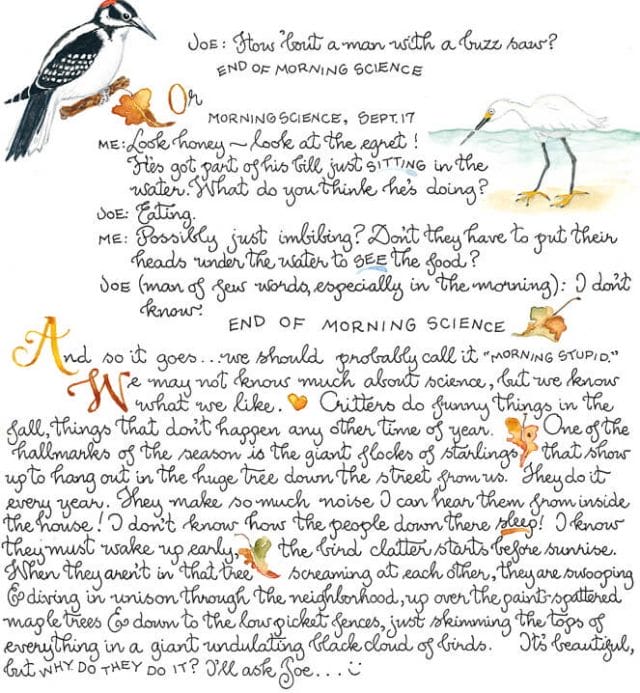 JOE: How 'bout a man with a buzz saw?
END OF MORNING SCIENCE
Or
MORNING SCIENCE, SEPT. 17
ME: Look honey ~ look at the egret!
He's got part of his bill just SITTING in the
water. What do you think he's doing?
JOE: Eating.
ME: Possibly just imbibing? Don't they have to put their
heads under the water to SEE the food?
JOE (man of few words, especially in the morning): I don't
know.
END OF MORNING SCIENCE
And so it goes...we should probably call it "MORNING STUPID."
We may not know much about science, but we know
what we like. 🧡 Critters do funny things in the
fall, things that don't happen any other time of year. One of the
hallmarks of the season is the giant flocks of starlings that show
up to hang out in the huge tree down the street from us. They do it
every year. They make so much noise I can hear them from inside
the house! I don't know how the people down there sleep! I know
they must wake up early, the bird clatter starts before sunrise.
When they aren't in that tree screaming at each other, they are swooping
& diving in unison through the neighborhood, up over the paint-spattered
maple trees & down to the low picket fences, just skimming the tops of
everything in a giant undulating black cloud of birds. It's beautiful,
but WHY DO THEY DO IT? I'll ask Joe... :)